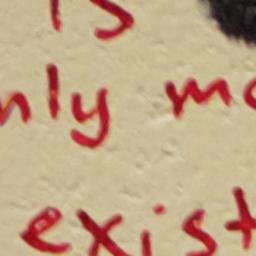 is
nly mo
exist